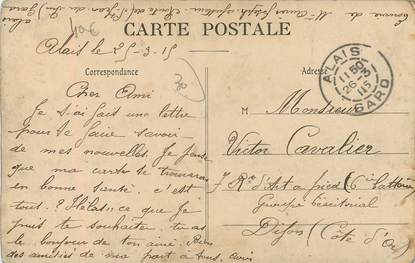 CARTE POSTALE
Alais le 25-3-15
Correspondance
Adresse
Cher Ami
Je t'ai fait une lettre
pour te faire savoir
de mes nouvelles. Je pense
que ma carte te trouvera
en bonne santé. c'est
tout. ? Hélas! ce que je
puis te souhaiter tu as
le bonjour de ton ami. Bien
des amitiés de ma part à tous. avoir
ALAIS
11 50
26-3
15
GARD
M Monsieur
Victor Cavalier
7 R d'Art à pied (6e batterie
Groupe territorial
Dijon (Côte d'Or)
40€
30